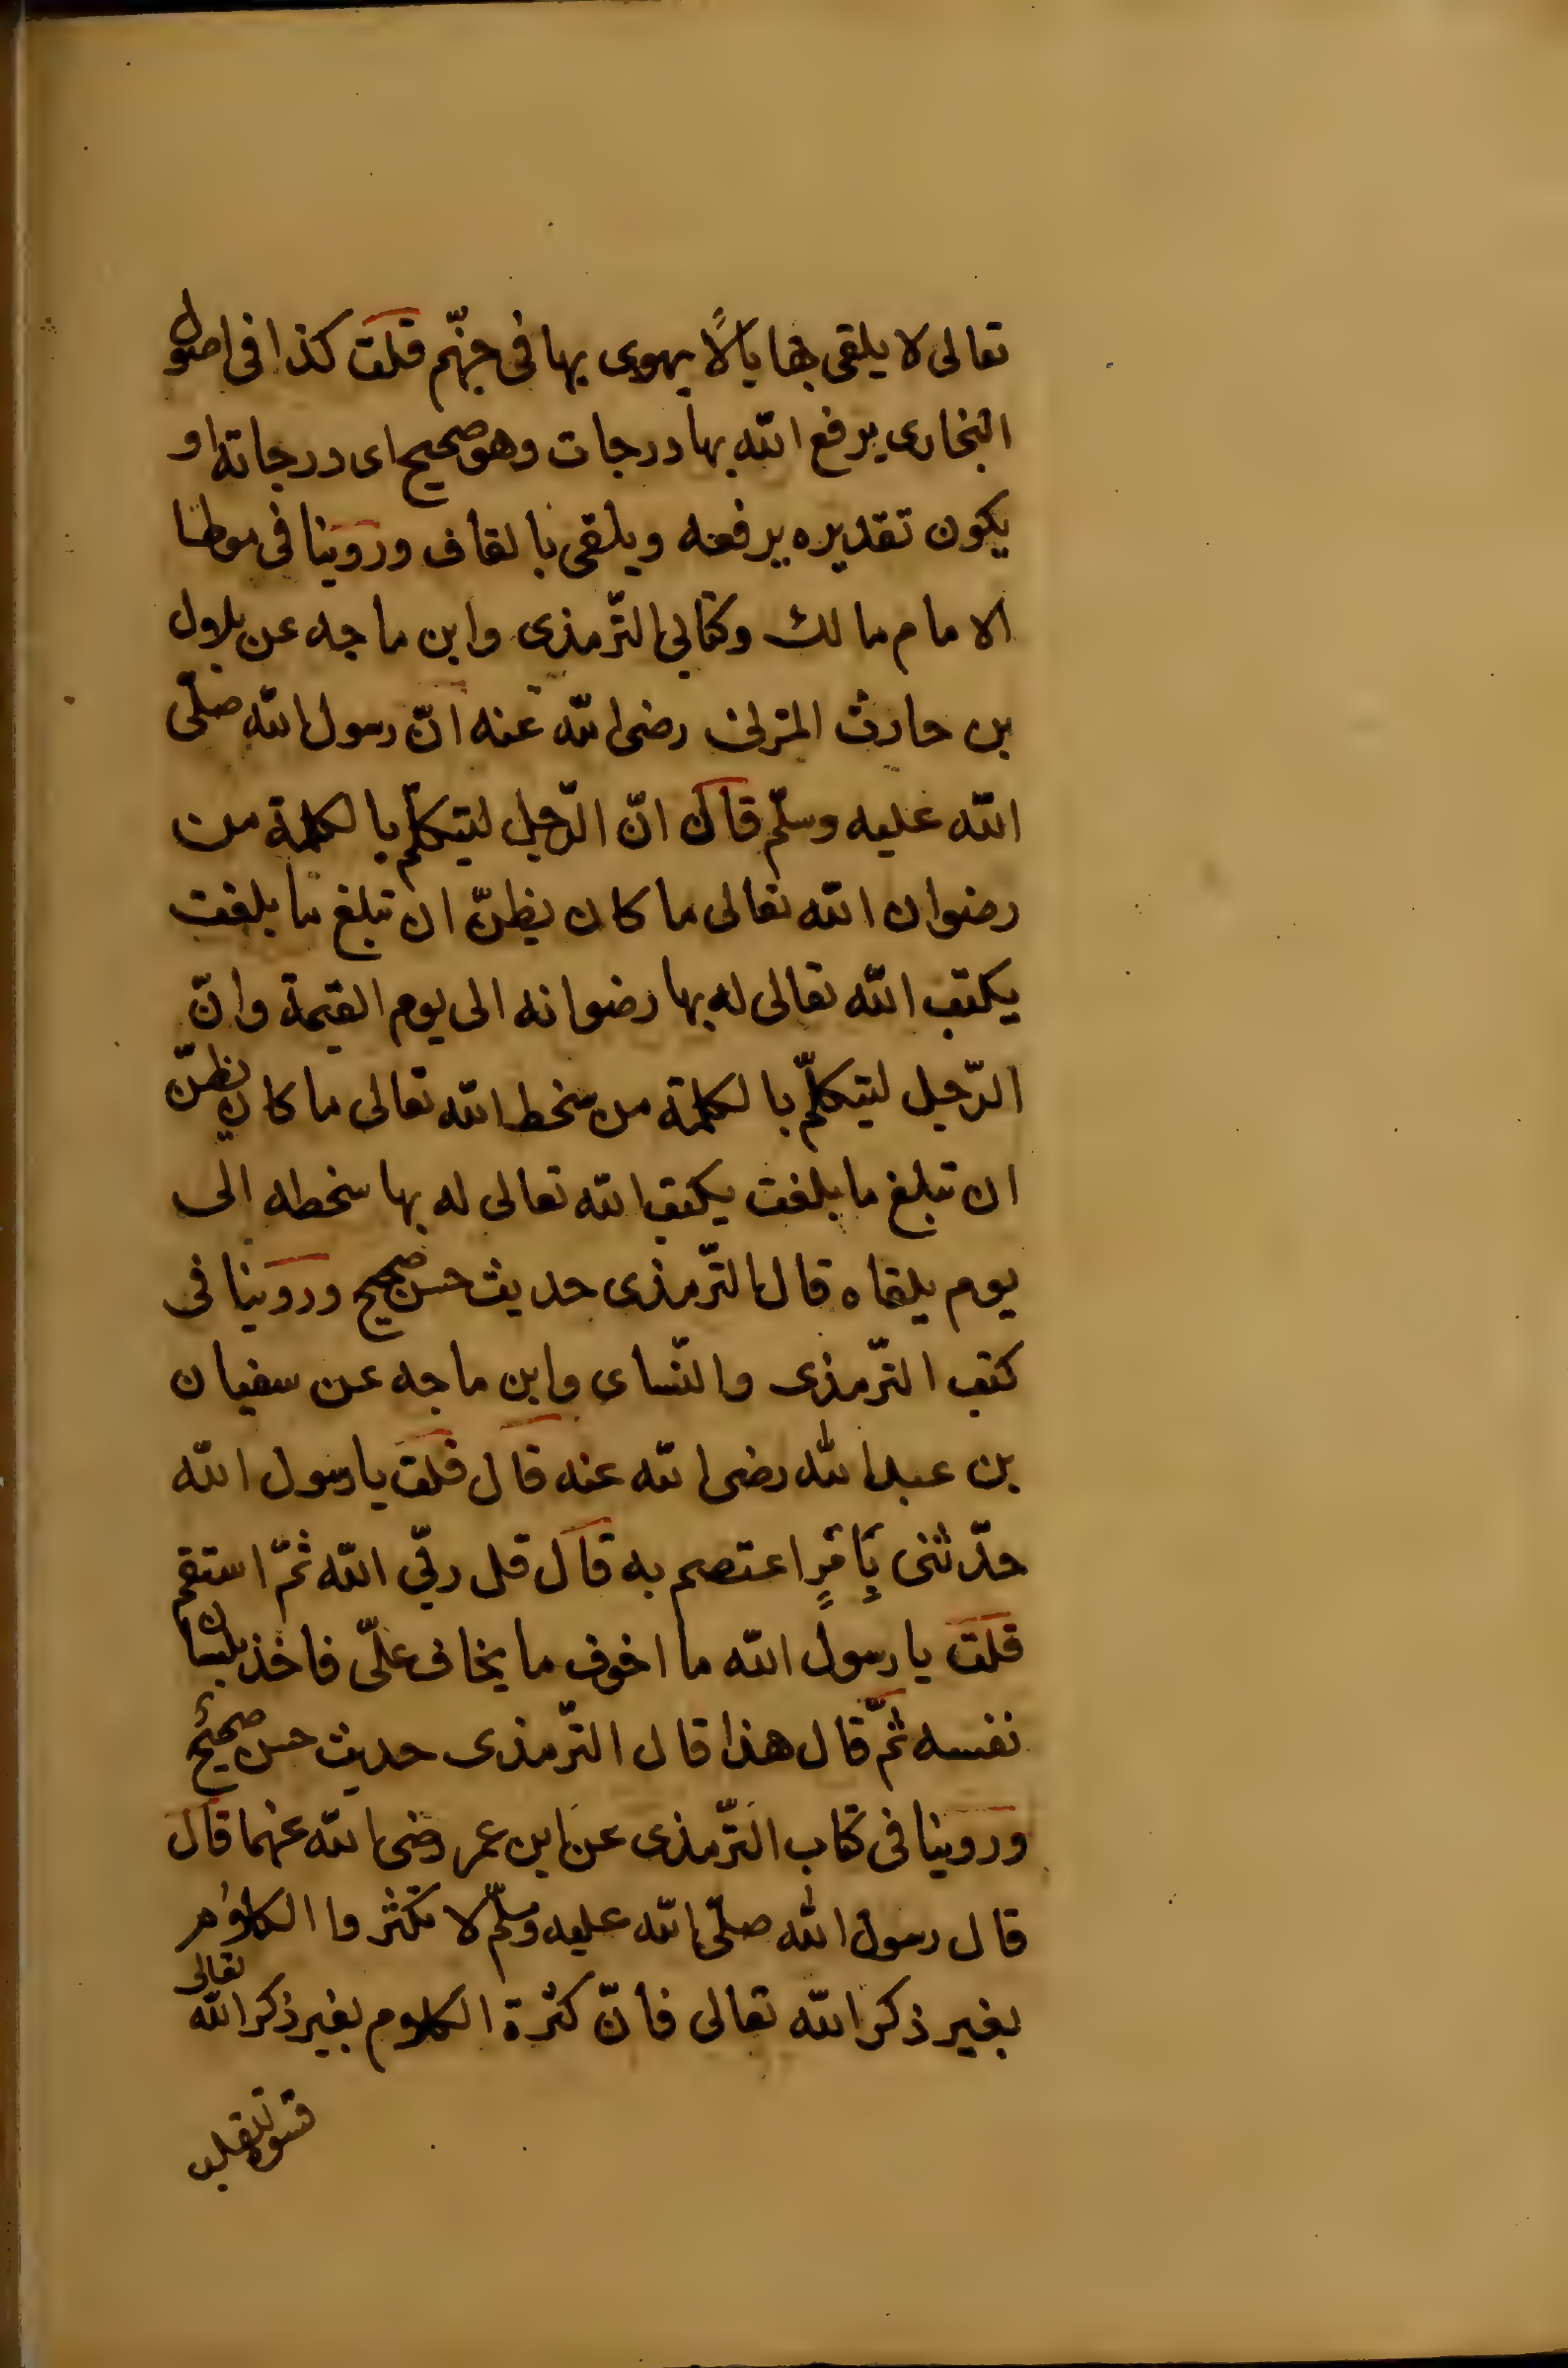 تعالى لا يلقى لها بالًا يهوى بها فى جهنّم قلت كذا فى اصول
البخارى يرفع الله بها درجات وهو صحيح اى درجاته او
يكون تقديره يرفعه ويلقى بالقاف وروينا فى موطا
الامام مالك وكتابى الترّمذى وابن ماجه عن بلال
بن حارث المزنى رضى الله عنه انّ رسول الله صلّى
الله عليه وسلّم قال انّ الرّجل ليتكلّم بالكلمة من
رضوان الله تعالى ما كان يظنّ ان تبلغ ما بلغت
يكتب الله تعالى له بها رضوانه الى يوم القيمة وانّ
الرّجل ليتكلّم بالكلمة من سخط الله تعالى ما كان يظنّ
ان تبلغ ما بلغت يكتب الله تعالى له بها سخطه الى
يوم يلقاه قال الترّمذى حديث حسن صحيح وروينا فى
كتب الترّمذى والنّساى وابن ماجه عن سفيان
بن عبد الله رضى الله عنه قال قلت يا رسول الله
حدّثنى بِأَمْرٍ اعتصم به قال قل ربّى الله ثمّ استقم
قلت يا رسول الله ما اخوف ما يخاف علىّ فاخذ بلسان
نفسه ثمّ قال هذا قال الترّمذى حديث حسن صحيح
وروينا فى كتاب الترّمذى عن ابن عمر رضى الله عنهما قال
قال رسول الله صلّى الله عليه وسلّم لا تكثروا الكلام
بغير ذكر الله تعالى فانّ كثرة الكلام بغير ذكر الله تعالى
قسوة للقلب